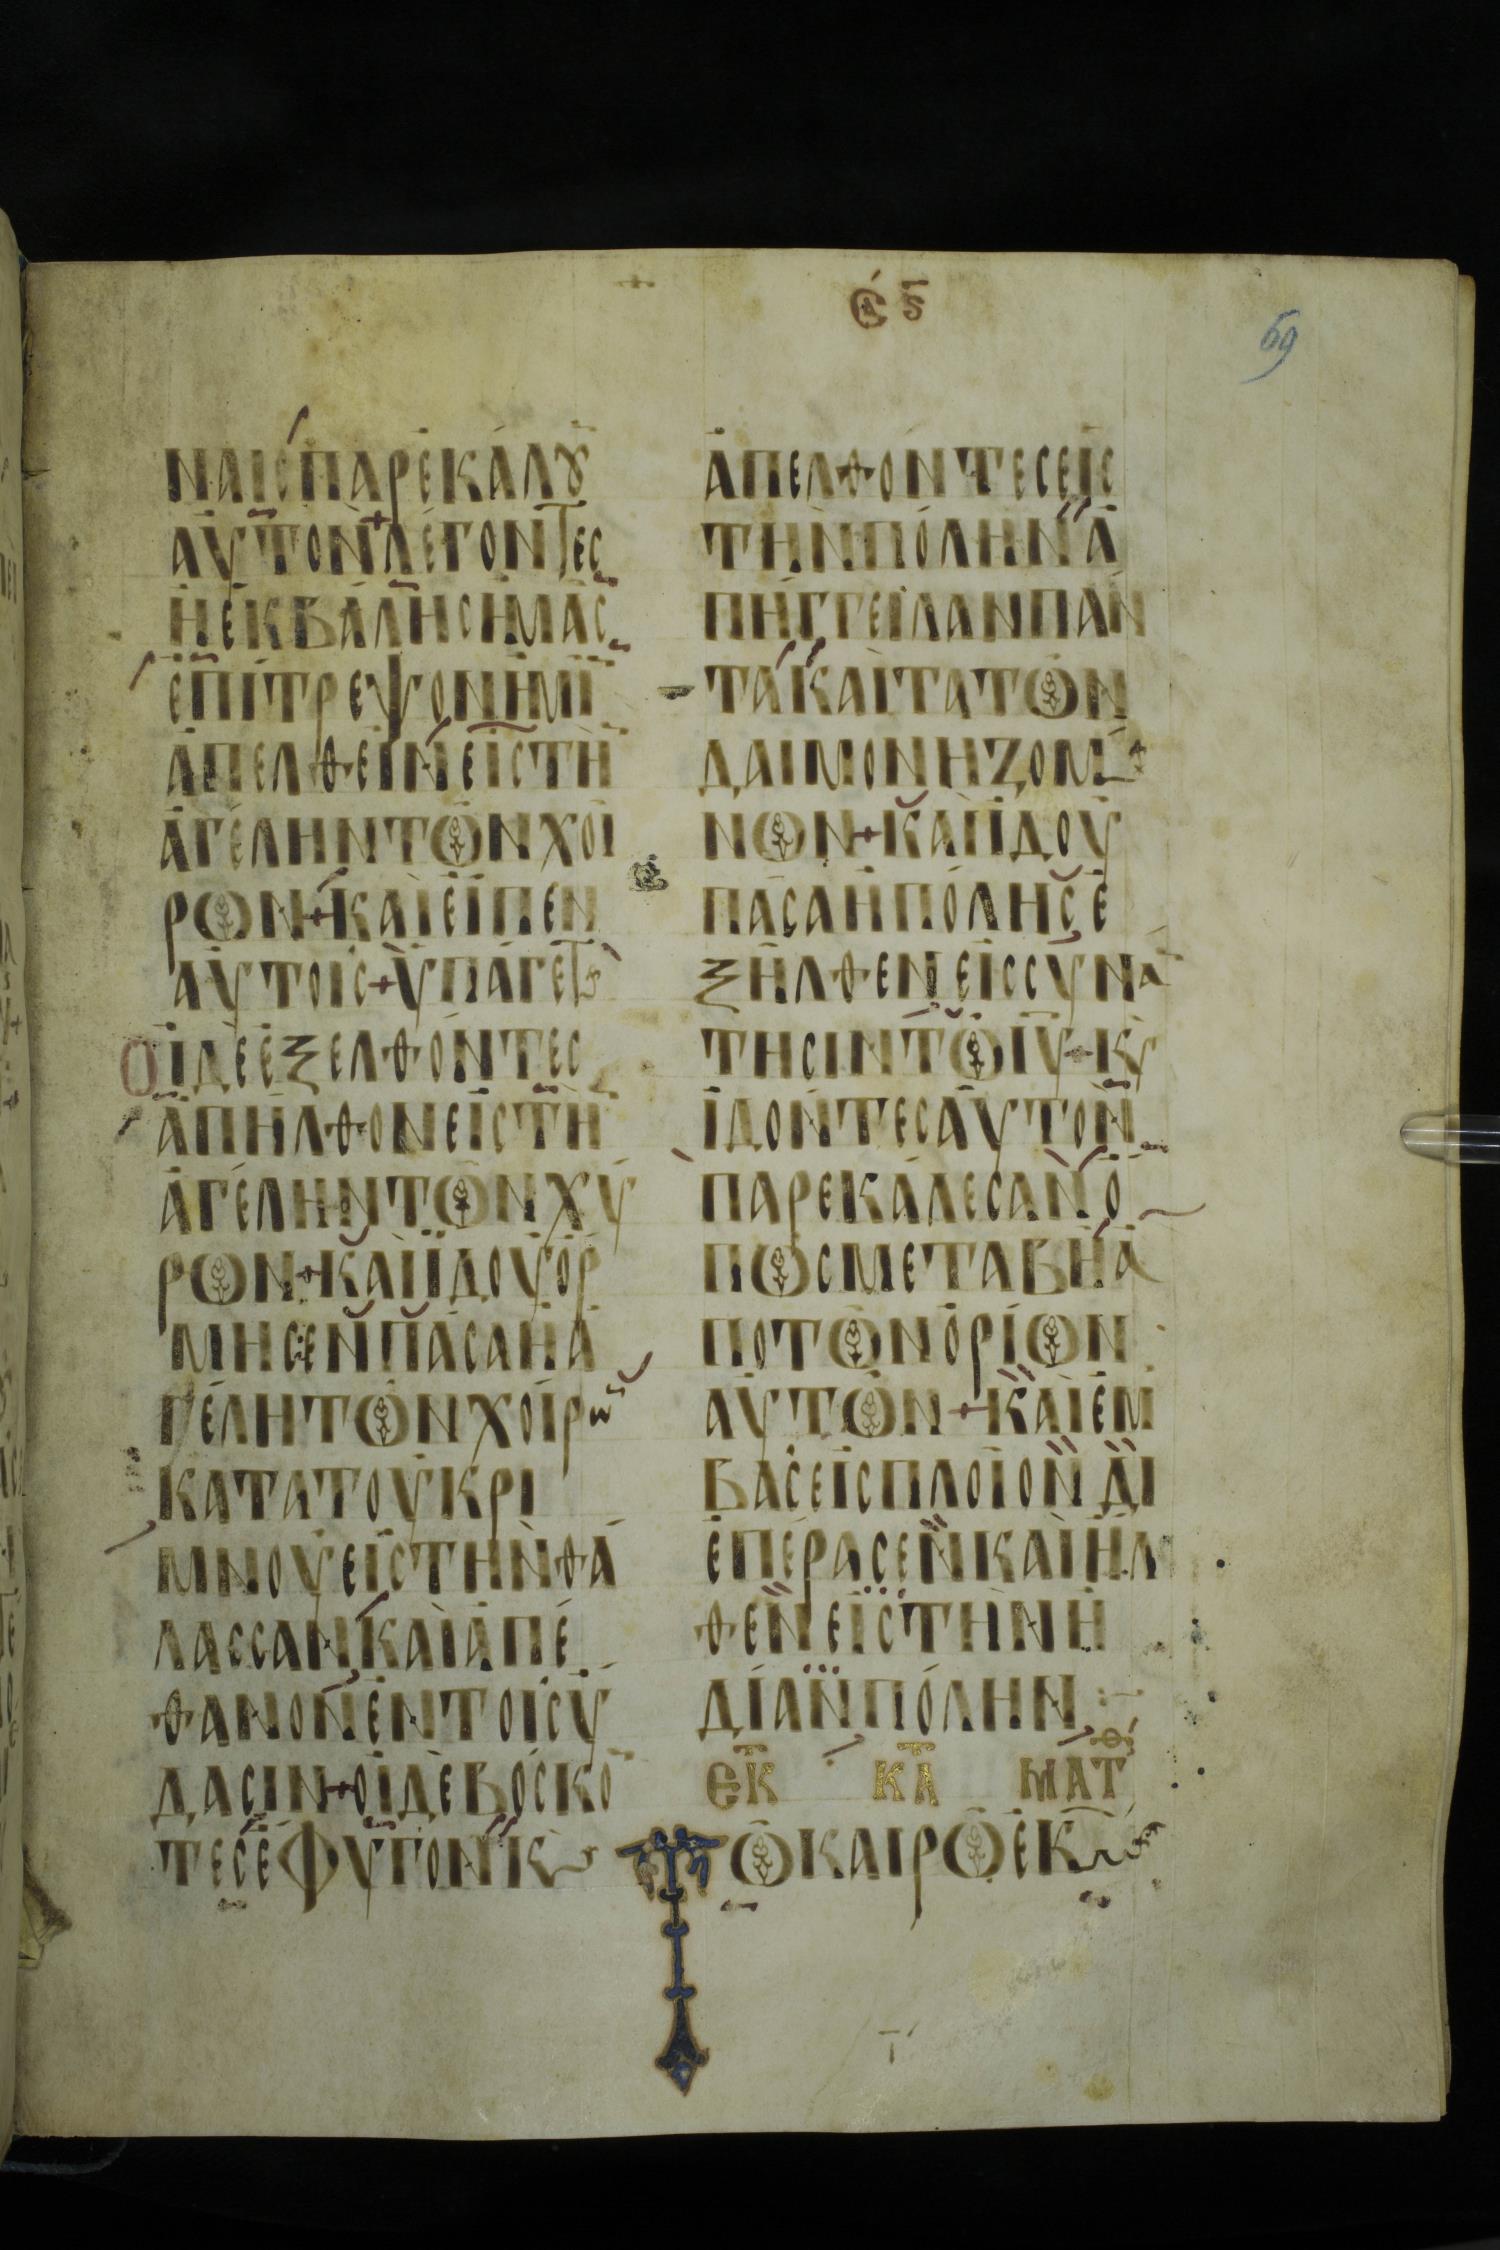 69
ΝΑΙΣΠΑΡΕΚΑΛȢ
ΑΥΤΟΝ+ΛΕΓΟΝΤΕΣ
ΗΕΚΒΑΛΗΣΗΜΑΣ
ΕΠΙΤΡΕΨΟΝΗΜΙ
ΑΠΕΛΘΕΙΝΕΙΣΤΗ
ΑΓΕΛΗΝΤΩΝΧΟΙ
ΡΩΝ+ΚΑΙΕΙΠΕΝ
ΑΥΤΟΙΣ+ΥΠΑΓΕΤ
ΟΙΔΕΕΞΕΛΘΟΝΤΕΣ
ΑΠΗΛΘΟΝΕΙΣΤΗ
ΑΓΕΛΗΝΤΩΝΧΥ
ΡΩΝ+ΚΑΙΙΔΟΥΟΡ
ΜΗΣΕΝΠΑΣΑΗΑ
ΓΕΛΗΤΩΝΧΟΙΡω
ΚΑΤΑΤΟΥΚΡΙ
ΜΝΟΥΕΙΣΤΗΝΘΑ
ΛΑΣΣΑΝΚΑΙΑΠΕ
ΘΑΝΟΝΕΝΤΟΙΣΥ
ΔΑΣΙΝ+ΟΙΔΕΒΟΣΚΟ
ΤΕΣΕΦΥΓΟΝΚ
ΑΠΕΛΘΟΝΤΕΣΕΙΣ
ΤΗΝΠΟΛΗΝΑ
ΠΗΓΓΕΙΛΑΝΠΑΝ
ΤΑΚΑΙΤΑΤΩΝ
ΔΑΙΜΟΝΗΖΟΜ
ΝΩΝ+ΚΑΙΙΔΟΥ
ΠΑΣΑΗΠΟΛΗΣΕ
ΞΗΛΘΕΝΕΙΣΣΥΝΑ
ΤΗΣΙΝΤΩΙΥ+Κ
ΙΔΟΝΤΕΣΑΥΤΟΝ
ΠΑΡΕΚΑΛΕΣΑΝΟ
ΠΩΣΜΕΤΑΒΗΑ
ΠΟΤΩΝΟΡΙΩΝ
ΑΥΤΩΝ+ΚΑΙΕΜ
ΒΑΣΕΙΣΠΛΟΙΟΝΔΙ
ΕΠΕΡΑΣΕΝΚΑΙΗΛ
ΘΕΝΕΙΣΤΗΝΗ
ΔΙΑΝΠΟΛΗΝ
ΕΚ ΚΤΑ ΜΑΤΘ
ΤΩΚΑΙΡΩΕΚ